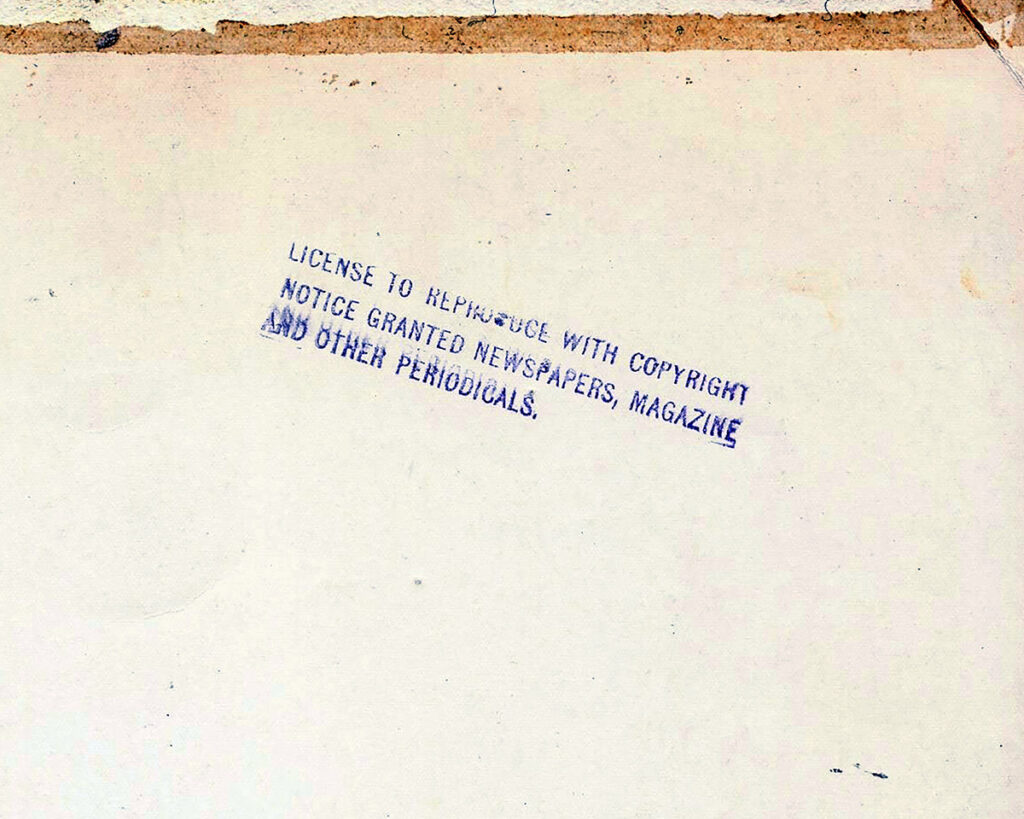 LICENSE TO REPRODUCE WITH COPYRIGHT
NOTICE GRANTED NEWSPAPERS, MAGAZINE
AND OTHER PERIODICALS.